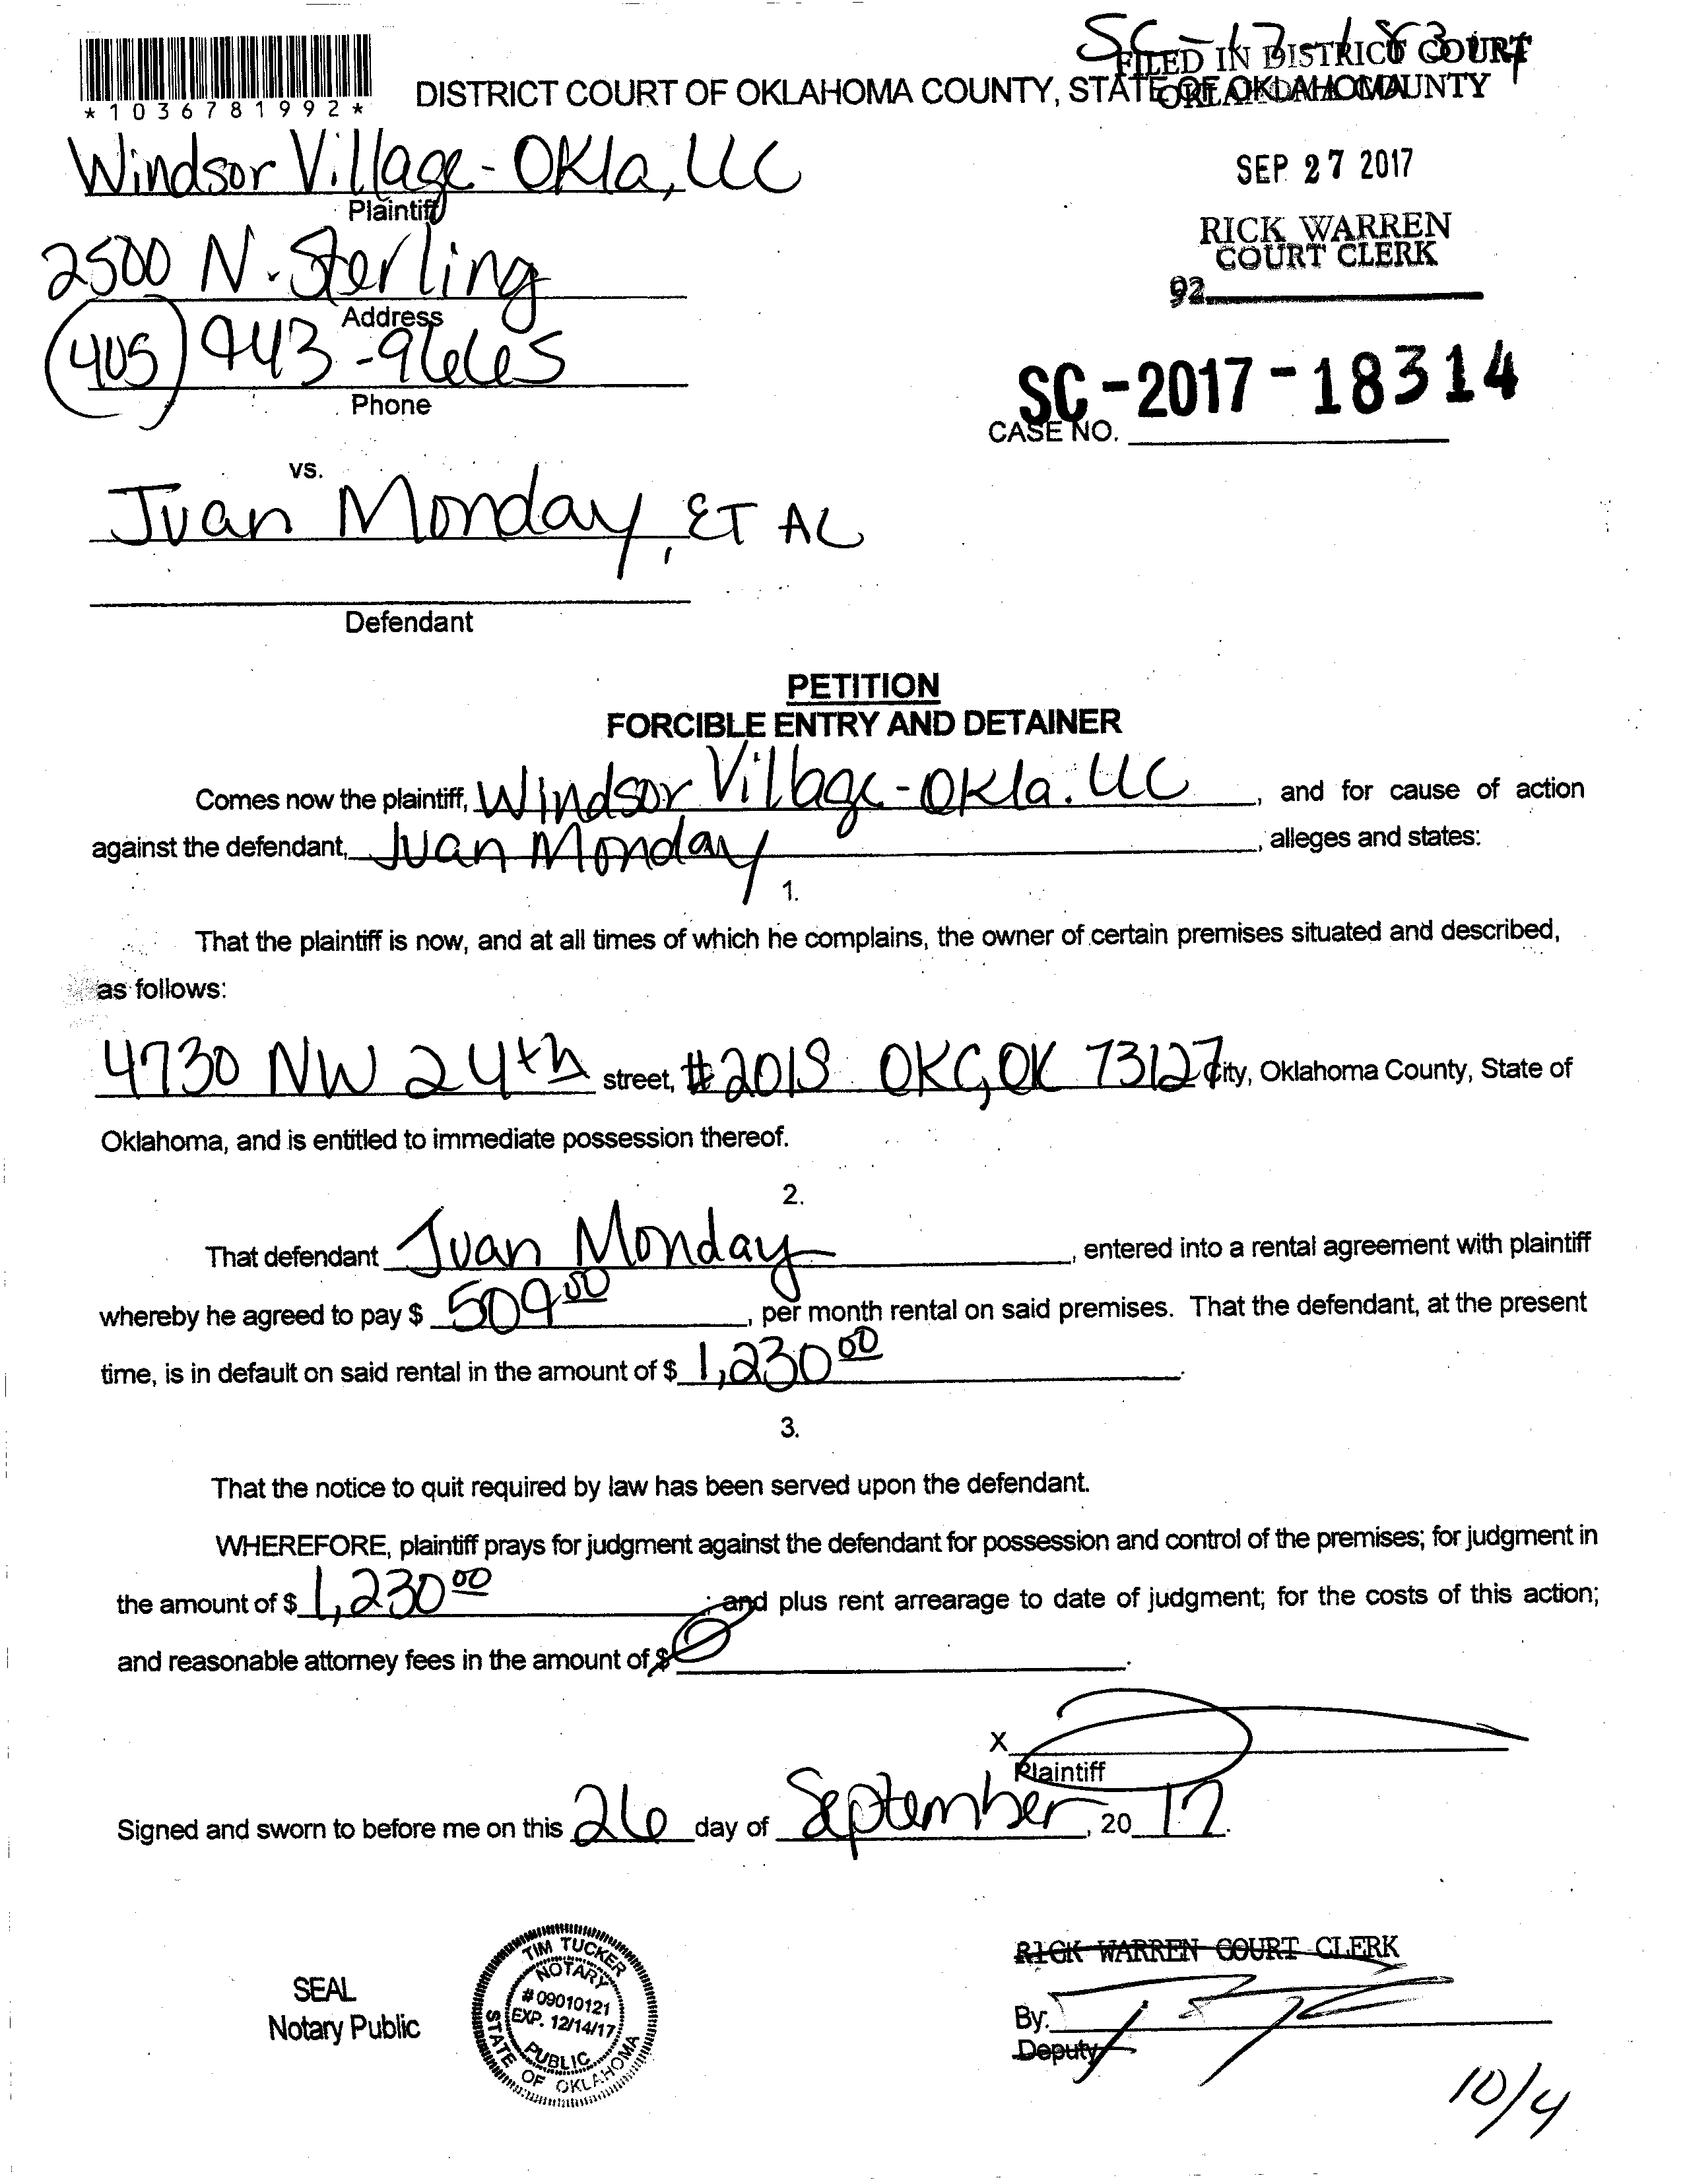 SC-17-18314
FILED IN DISTRICT COURT
OKLAHOMA COUNTY
*1036781992*
DISTRICT COURT OF OKLAHOMA COUNTY, STATE OF OKLAHOMA
Windsor Village-Okla, LLC
SEP 27 2017
Plaintiff
RICK WARREN
COURT CLERK
2500 N. Sterling
92
Address
(405) 943-9665
Phone
SC-2017-18314
CASE NO.
vs.
Juan Monday, ET AL
Defendant
PETITION
FORCIBLE ENTRY AND DETAINER
Comes now the plaintiff, Windsor Village-Okla. LLC, and for cause of action
against the defendant, Juan Monday, alleges and states:
1.
That the plaintiff is now, and at all times of which he complains, the owner of certain premises situated and described,
as follows:
4730 NW 24th street, #2018 OKC, OK 73127 City, Oklahoma County, State of
Oklahoma, and is entitled to immediate possession thereof.
2.
That defendant Juan Monday, entered into a rental agreement with plaintiff
whereby he agreed to pay $ 509.00, per month rental on said premises. That the defendant, at the present
time, is in default on said rental in the amount of $ 1,230.00.
3.
That the notice to quit required by law has been served upon the defendant.
WHEREFORE, plaintiff prays for judgment against the defendant for possession and control of the premises; for judgment in
the amount of $ 1,230.00; and plus rent arrearage to date of judgment; for the costs of this action;
and reasonable attorney fees in the amount of $ 0.
X
Plaintiff
Signed and sworn to before me on this 26 day of September, 20 17.
SEAL
Notary Public
TIM TUCKER
NOTARY
#09010121
EXP. 12/14/17
PUBLIC
STATE OF OKLAHOMA
RICK WARREN COURT CLERK
By:
Deputy
10/4